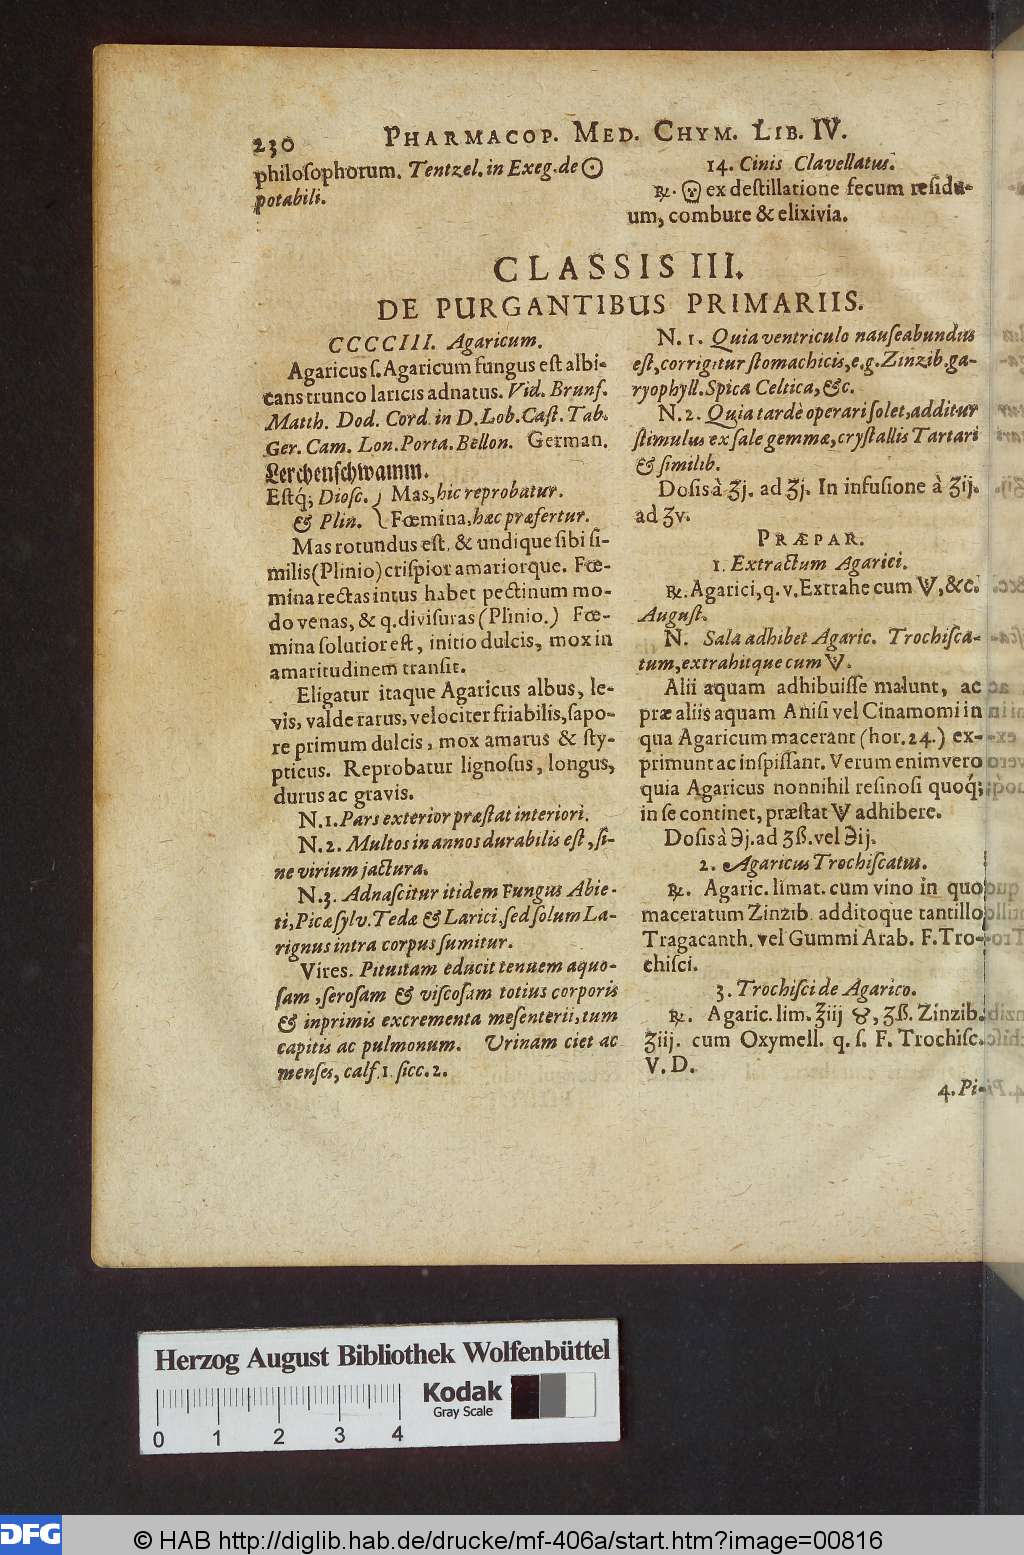 230 PHARMACOP. MED. CHYM. LIB. IV.
philosophorum. Tentzel. in Exeg. de ☉
potabili.
14. Cinis Clavellatus.
℞. 💀 ex destillatione fecum residu-
um, combure & elixivia.
CLASSIS III.
DE PURGANTIBUS PRIMARIIS.
CCCCIII. Agaricum.
Agaricus s. Agaricum fungus est albi-
cans trunco laricis adnatus. Vid. Brunf.
Matth. Dod. Cord. in D. Lob. Cast. Tab.
Ger. Cam. Lon. Porta. Bellon. German.
Lerchenschwamm.
Estq; Diosc. } Mas, hic reprobatur.
& Plin. { Fœmina, hæc præfertur.
Mas rotundus est, & undique sibi si-
milis (Plinio) crispior amariorque. Fœ-
mina rectas intus habet pectinum mo-
do venas, & q. divisuras (Plinio.) Fœ-
mina solutior est, initio dulcis, mox in
amaritudinem transit.
Eligatur itaque Agaricus albus, le-
vis, valde rarus, velociter friabilis, sapo-
re primum dulcis, mox amarus & sty-
pticus. Reprobatur lignosus, longus,
durus ac gravis.
N. 1. Pars exterior præstat interiori.
N. 2. Multos in annos durabilis est, si-
ne virium jactura.
N. 3. Adnascitur itidem Fungus Abie-
ti, Piceæ sylv. Tedæ & Larici, sed solum La-
rignus intra corpus sumitur.
Vires. Pituitam educit tenuem aquo-
sam, serosam & viscosam totius corporis
& inprimis excrementa mesenterii, tum
capitis ac pulmonum. Urinam ciet ac
menses, calf. 1. sicc. 2.
N. 1. Quia ventriculo nauseabundus
est, corrigitur stomachicis, e. g. Zinzib. ga-
ryophyll. Spica Celtica, &c.
N. 2. Quia tardè operari solet, additur
stimulus ex sale gemmæ, crystallis Tartari
& similib.
Dosis à ʒj. ad ʒj. In infusione à ʒij.
ad ʒv.
PRÆPAR.
1. Extractum Agarici.
℞. Agarici, q. v. Extrahe cum V, &c.
August.
N. Sala adhibet Agaric. Trochisca-
tum, extrahitque cum V.
Alii aquam adhibuisse malunt, ac
præ aliis aquam Anisi vel Cinamomi in
qua Agaricum macerant (hor. 24.) ex-
primunt ac inspissant. Verum enimvero
quia Agaricus nonnihil resinosi quoq;
in se continet, præstat V adhibere.
Dosis à ℈j. ad ʒß. vel ℈ij.
2. Agaricus Trochiscatus.
℞. Agaric. limat. cum vino in quo
maceratum Zinzib. additoque tantillo
Tragacanth. vel Gummi Arab. F. Tro-
chisci.
3. Trochisci de Agarico.
℞. Agaric. lim. ℥iij ʒß. Zinzib.
ʒiij. cum Oxymell. q. s. F. Trochisc.
V. D.
4. Pi-
Herzog August Bibliothek Wolfenbüttel
Kodak
Gray Scale
0 1 2 3 4
DFG
© HAB http://diglib.hab.de/drucke/mf-406a/start.htm?image=00816